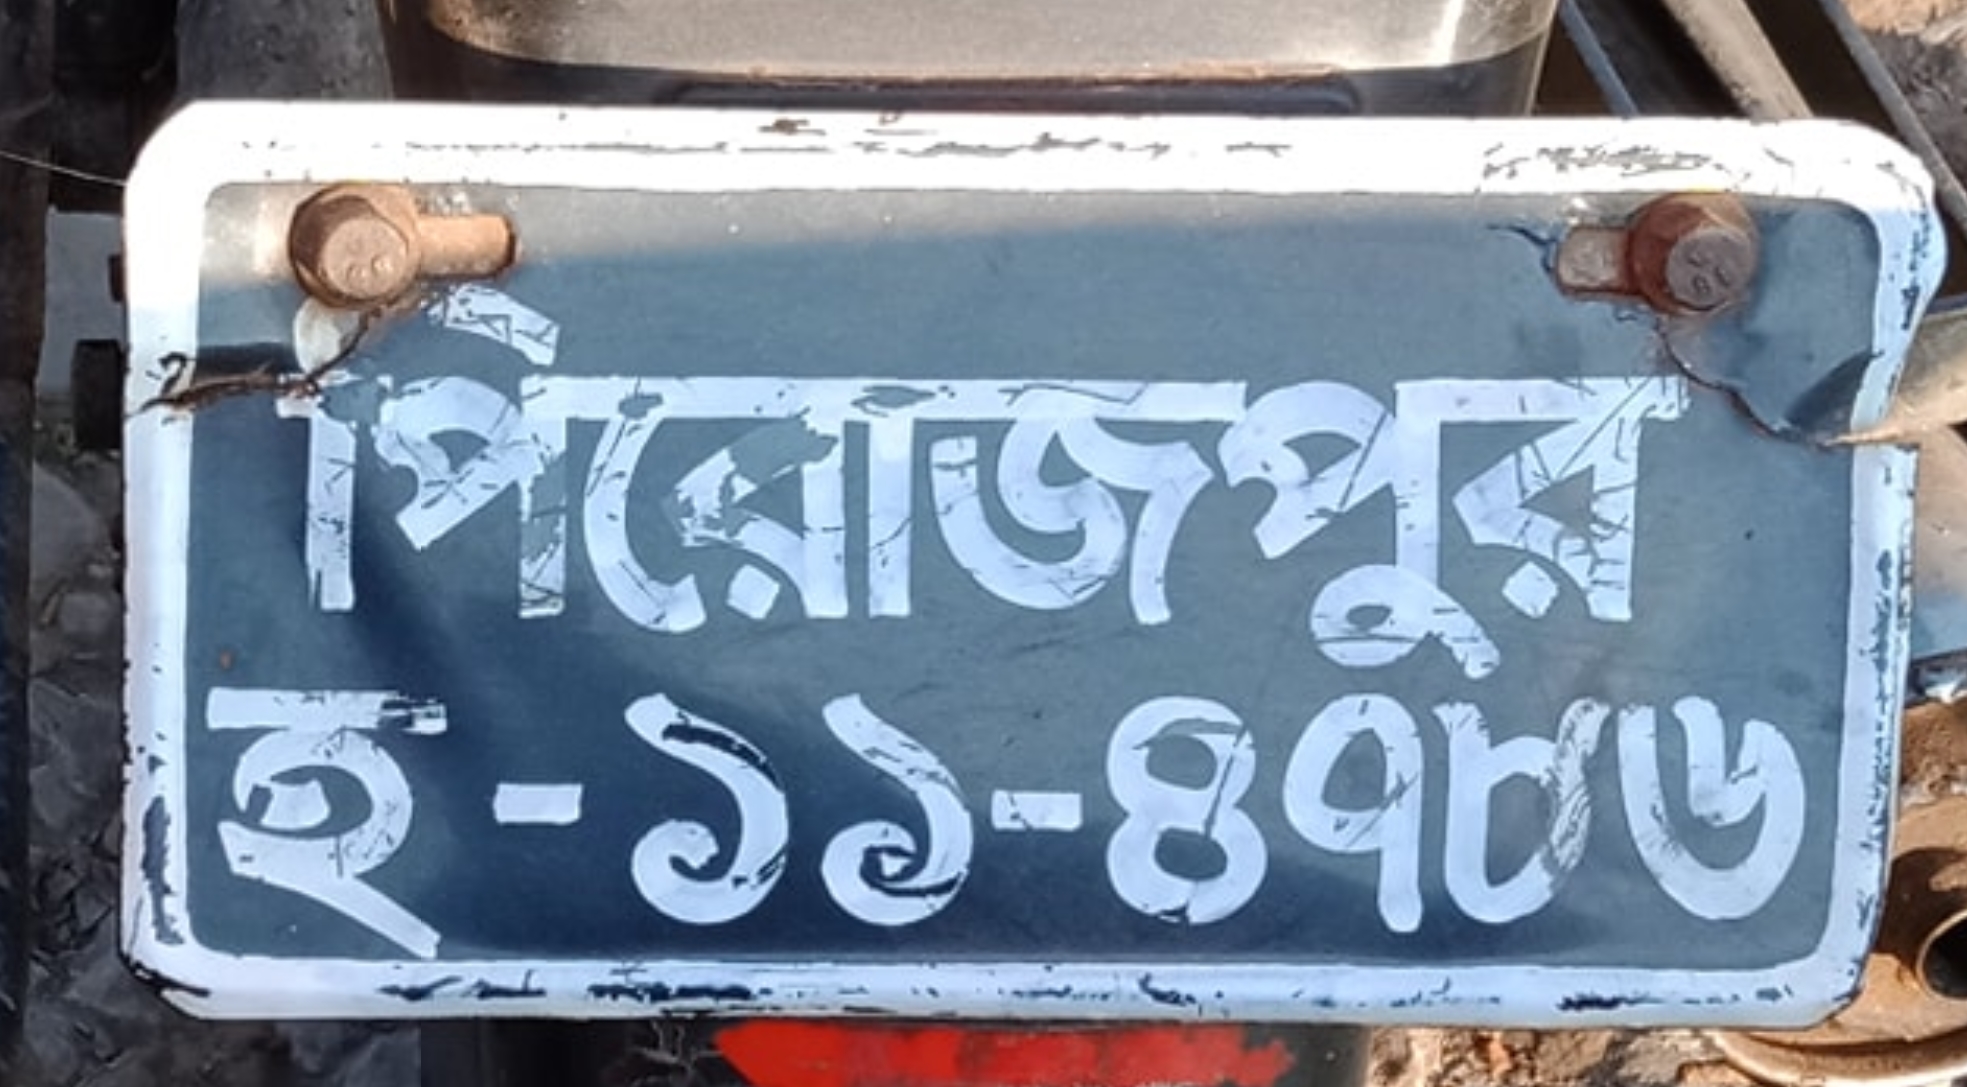 পিরোজপুর
হ-১১-৪৭৮৬